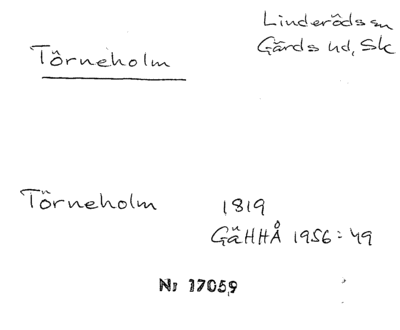 Linderöds sn
Törneholm
Gärds hd, Sk
Törneholm 1819
GäHHÅ 1956:49
Nr 17059